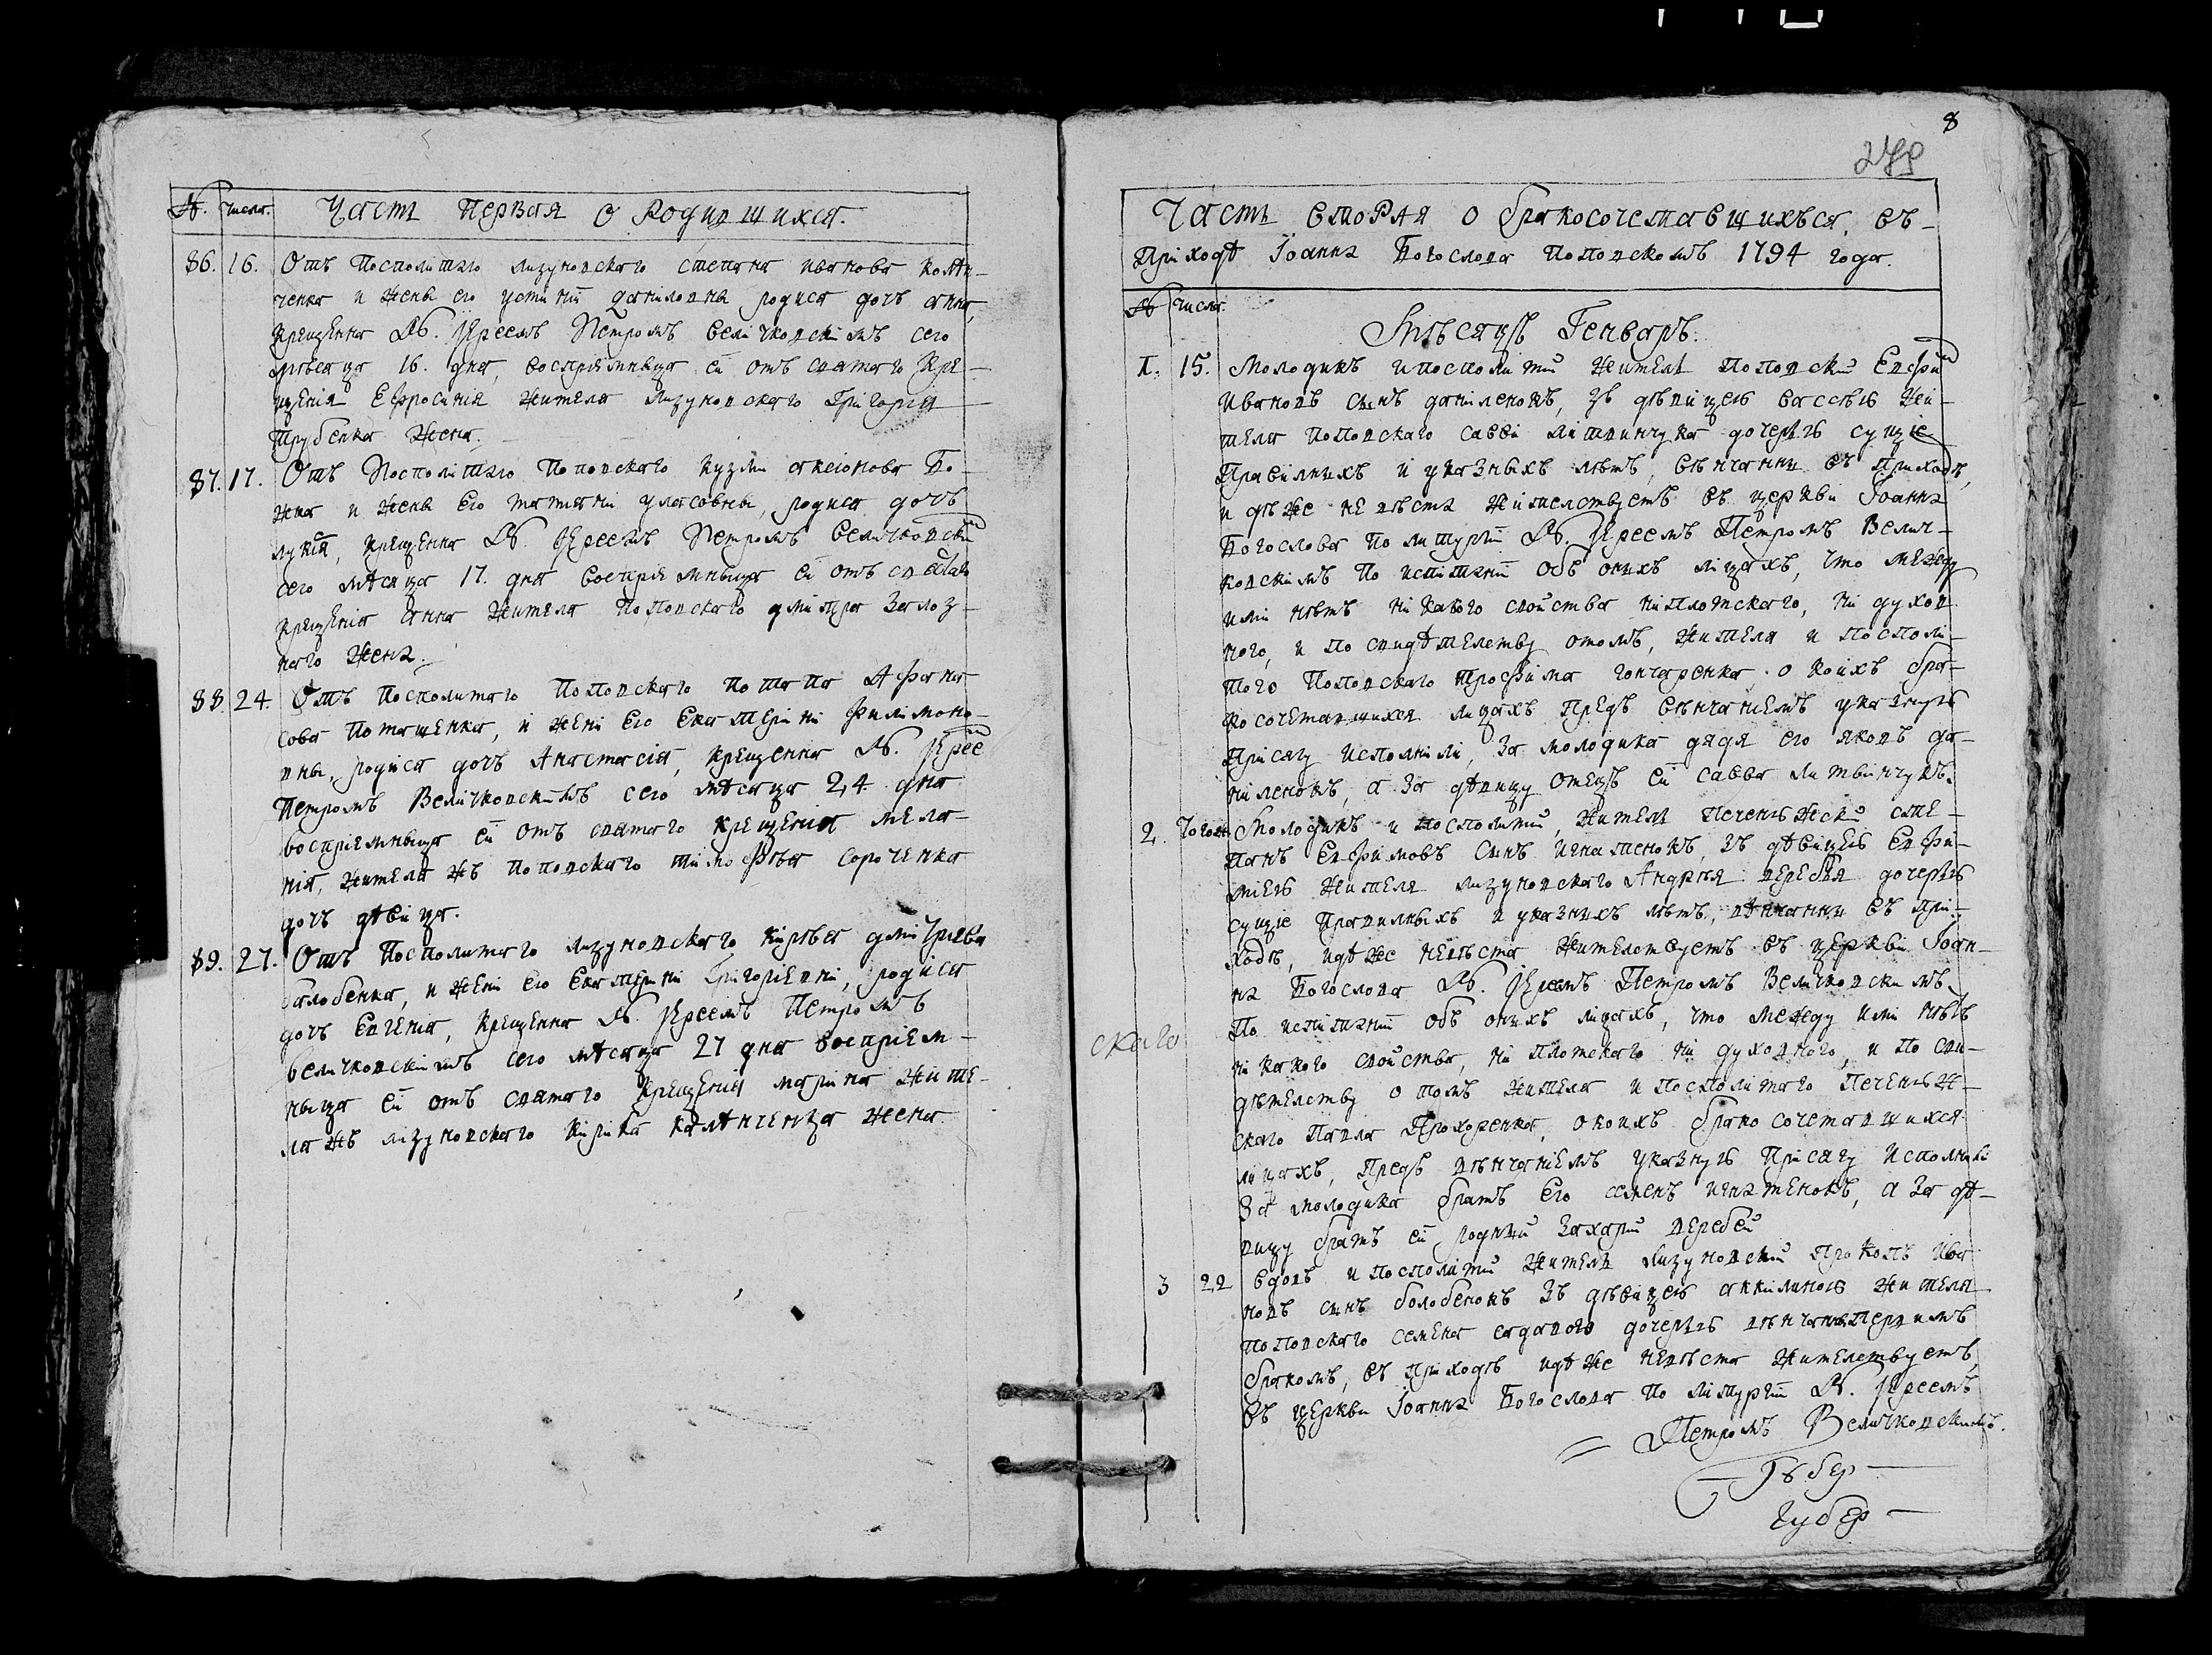 №. число. Часть первая о Родившихся.
86. 16. Отъ посполитаго лизуновскаго степана иванова колѣн-
ченка и жены его устинїи данїловны родися дочъ анна,
крещенна Іереемъ Петромъ Величковскїмъ сего
мѣсяца 16. дня, воспрїемница ей отъ святаго кре-
щенїя Ефросинїя жителя лизуновскаго Григорїя
трубенка жена.
87. 17. Отъ посполїтаго поповскаго кузми
и жены его татиянїи уласовны, родися дочъ
крещенна Іереемъ Петромъ Величковски
сего мѣсяца 17. дня воспрїемныца ей отъ святаго
крещенїя анна жителя поповскаго дмїтра
жена.
88. 24. Отъ посполитаго поповскаго потапа Афана
сова потапенка, и женї его Екатерїнї филїмоно-
вны, родїся дочъ Анастасїя, крещенна Іерее
Петромъ Величковскимъ сего мѣсяца 24 дня
воспрїемныца ей отъ святаго крещенїя мела-
нїя, жителя жъ поповскаго тїмофѣя сороченка
дочъ дѣвїца.
89. 27. Отъ посполитаго лизуновскаго кїрѣя дмїтрїева
балобенка, и женї его Екатерїнї Григорїевнї, родїся
дочъ Евгенїя, крещенна Іереемъ Петромъ
величковскїмъ сего мѣсяца 27 дня воспрїем-
ныца ей отъ святаго крещенїя марїна жите-
ля жъ лизуновскаго кїрика жена.
8
Часть вторая о бракосочетавшихъся, въ
приходѣ Іоанна Богослова поповскомъ 1794 года.
№ число.
Мѣсяцъ Генваръ.
1. 15. Молодикъ и посполитїй жителъ поповскїй Евфи
Ивановъ синъ данїленокъ, зъ дѣвицею вассою жи-
теля поповскаго саввї литвинчука дочерью сущїе
правилнихъ и указныхъ лѣтъ, вѣнчанни въ приходѣ,
идѣже невѣста жителствуетъ въ церкви Іоанна
Богослова по литургїи Іереемъ Петромъ Велич-
ковскїмъ по испитанїи объ онихъ лїцахъ, что между
имї нѣтъ нїкакого свойства нї плотскаго, нї духов
ного, и по свидѣтелству о томъ, жителя и посполї-
таго поповскаго трофима гончаренка, о коихъ бра-
косочетавшихся лицахъ предъ вѣнчанїемъ указную
присягу исполнїли, за молодика дядя его яковъ да-
нїленокъ, а за дѣвицу отецъ ей савва литвинчукъ.
2. Того Молодикъ и посполитїй, жителъ печенюжскїй сте-
панъ Евфимовъ синъ игнатенокъ, зъ дѣвицею Евфи-
мїею жителя лизуновскаго Андрѣя деребѣя дочерью
сущїе правилныхъ и указнихъ лѣтъ, вѣнчанни въ при-
ходѣ, идѣже невѣста жителствуетъ въ церквї Іоан-
на Богослова Іереемъ Петромъ Величковскимъ,
по испитанїи объ онихъ лїцахъ, что между имї нѣтъ
нїкакого свойства, нї плотскаго нї духовного, и по сви-
дѣтелству о томъ жителя и посполїтаго печенюж-
скаго павла прохоренка, о коихъ бракосочетавшихся
лїцахъ, предъ вѣнчанїемъ указную присягу исполнили
за молодика братъ его семенъ игнатенокъ, а за дѣ-
вицу братъ ей роднїй захарїй деребей
3 22 вдовъ и посполитїй жителъ лизуновскїй прокопъ ива
новъ синъ болобенокъ зъ дѣвїцею акилиною жителя
поповскаго семена дочерью вѣнчани первимъ
бракомъ, въ приходѣ идѣже невѣста жителствуетъ,
въ церкви Іоанна Богослова по лїтургїи Іереемъ
Петромъ Величковскимъ.
скаго